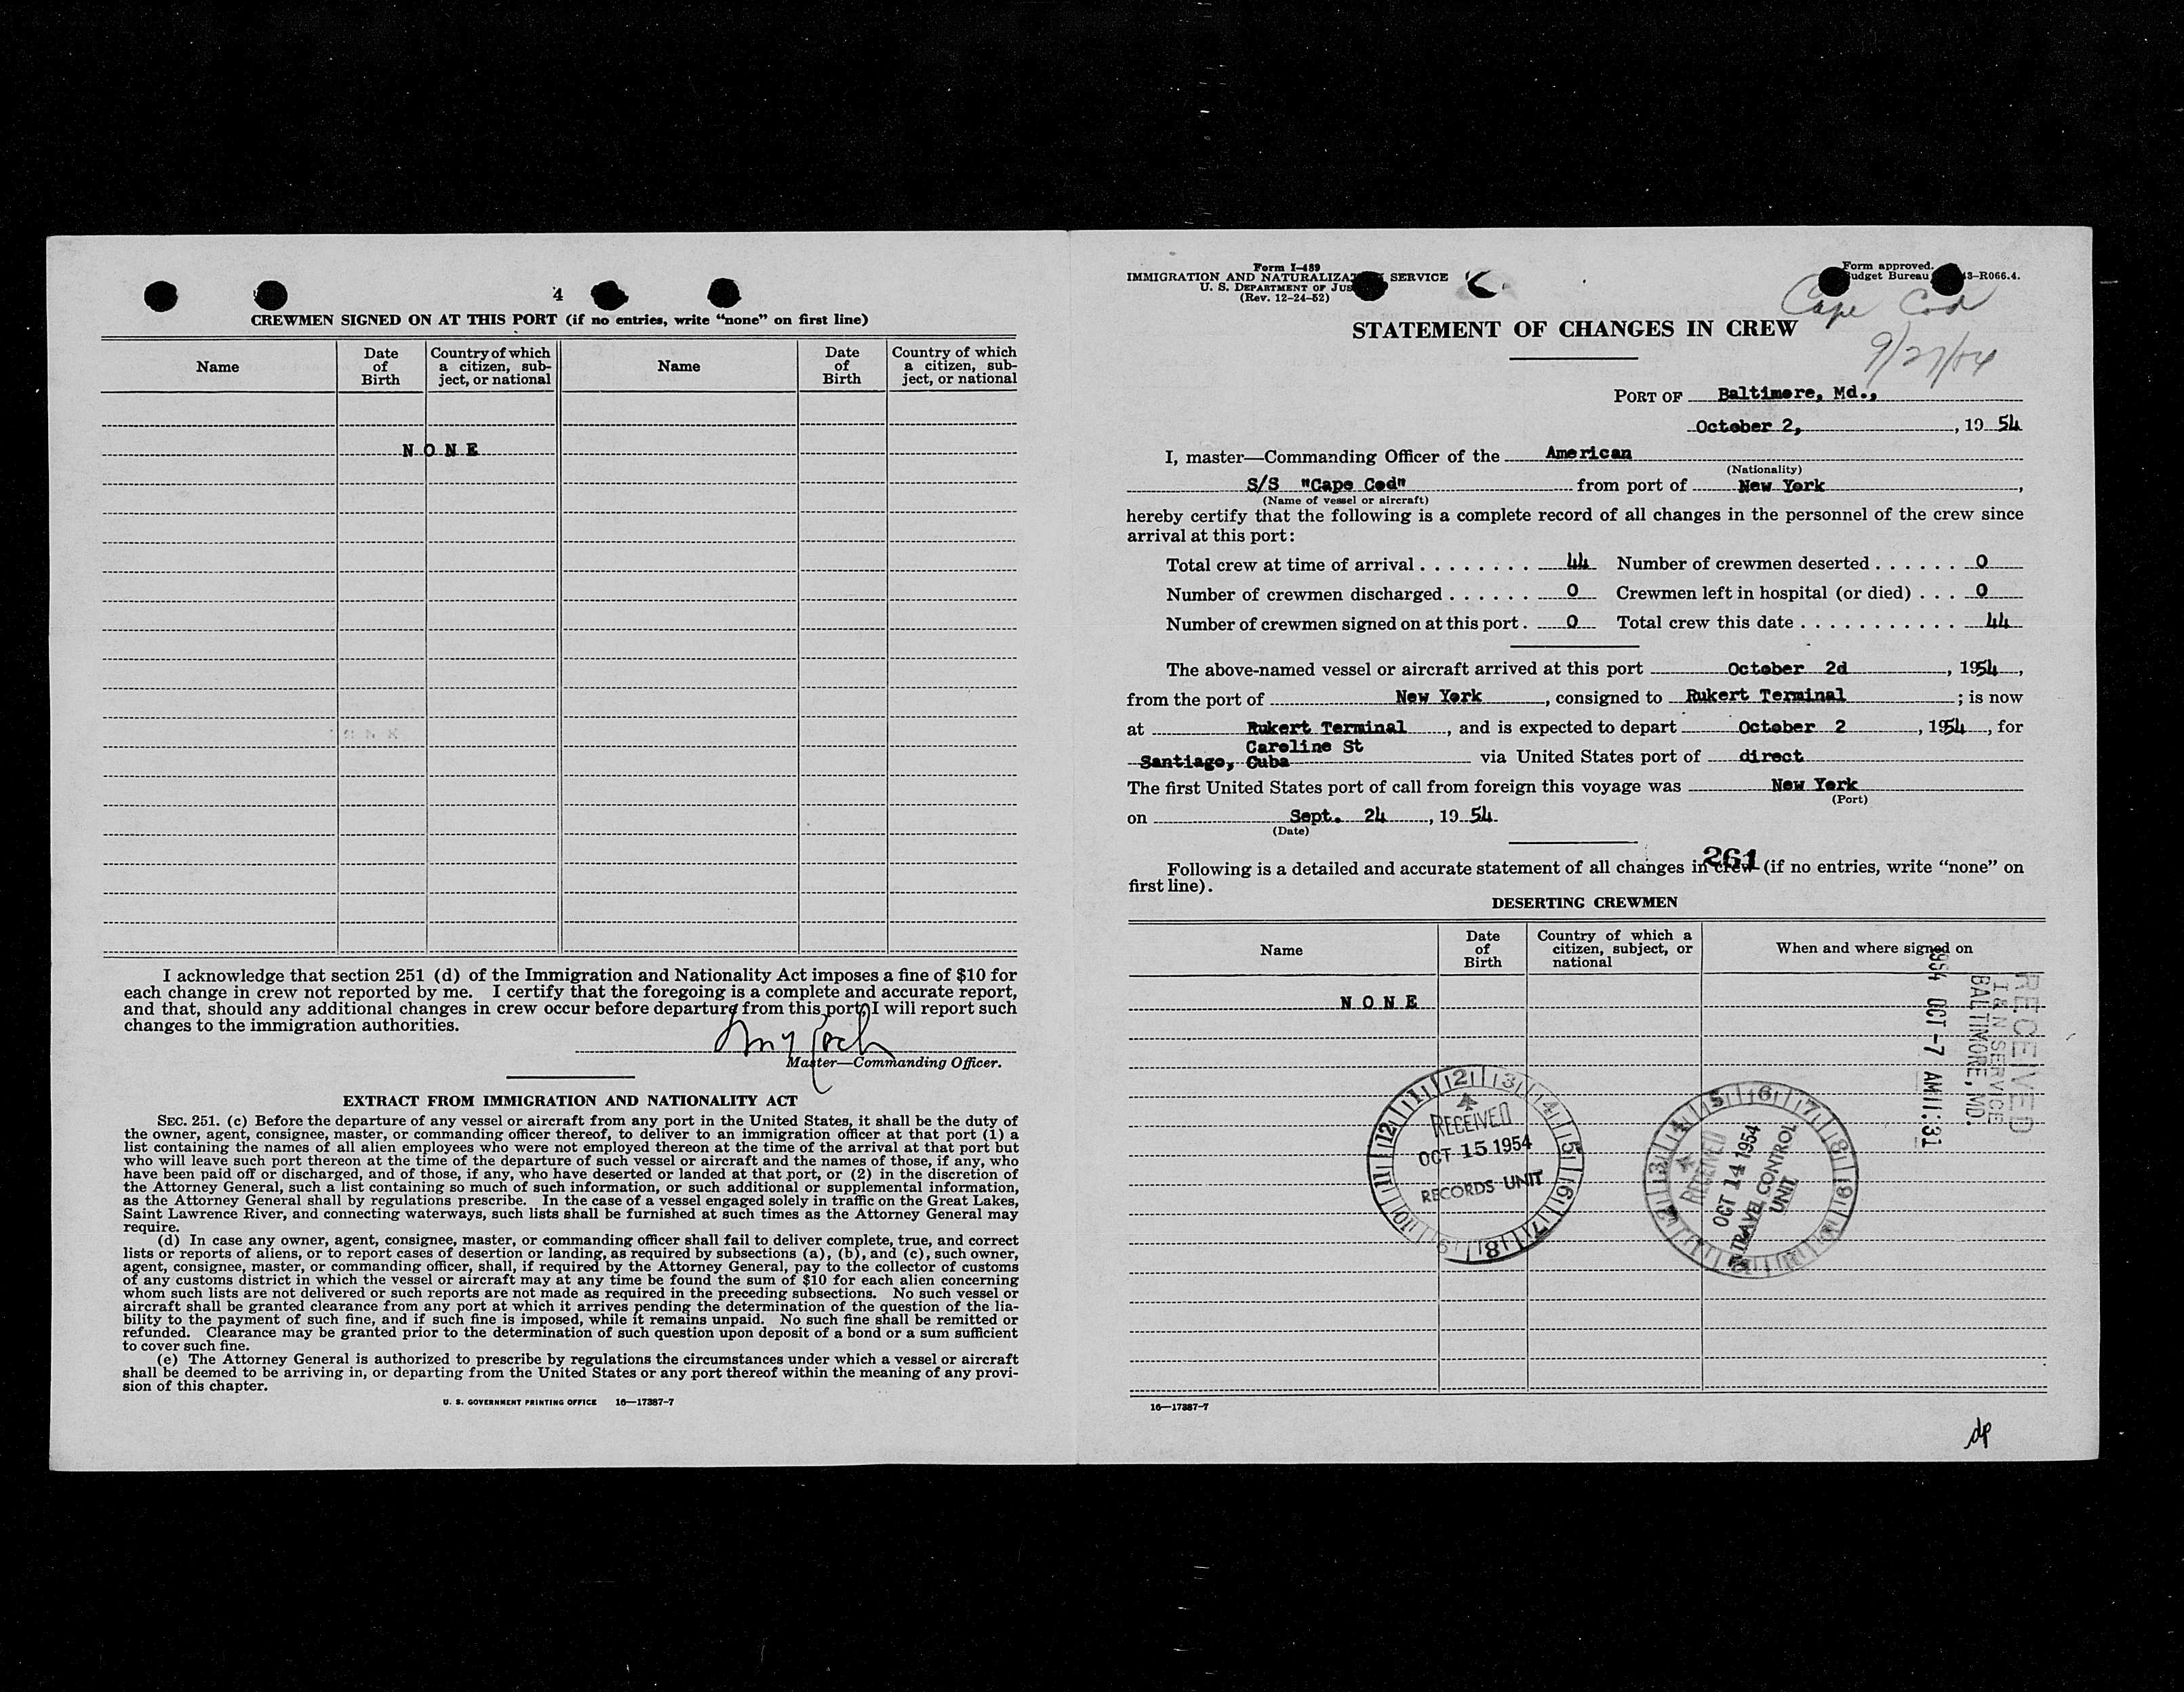 4
CREWMEN SIGNED ON AT THIS PORT (if no entries, write “none” on first line)
Name Date of Birth Country of which a citizen, sub-ject, or national Name Date of Birth Country of which a citizen, sub-ject, or national
N O N E
I acknowledge that section 251 (d) of the Immigration and Nationality Act imposes a fine of $10 for
each change in crew not reported by me. I certify that the foregoing is a complete and accurate report,
and that, should any additional changes in crew occur before departure from this port, I will report such
changes to the immigration authorities.
Master—Commanding Officer.
EXTRACT FROM IMMIGRATION AND NATIONALITY ACT
SEC. 251. (c) Before the departure of any vessel or aircraft from any port in the United States, it shall be the duty of
the owner, agent, consignee, master, or commanding officer thereof, to deliver to an immigration officer at that port (1) a
list containing the names of all alien employees who were not employed thereon at the time of the arrival at that port but
who will leave such port thereon at the time of the departure of such vessel or aircraft and the names of those, if any, who
have been paid off or discharged, and of those, if any, who have deserted or landed at that port, or (2) in the discretion of
the Attorney General, such a list containing so much of such information, or such additional or supplemental information,
as the Attorney General shall by regulations prescribe. In the case of a vessel engaged solely in traffic on the Great Lakes,
Saint Lawrence River, and connecting waterways, such lists shall be furnished at such times as the Attorney General may
require.
(d) In case any owner, agent, consignee, master, or commanding officer shall fail to deliver complete, true, and correct
lists or reports of aliens, or to report cases of desertion or landing, as required by subsections (a), (b), and (c), such owner,
agent, consignee, master, or commanding officer, shall, if required by the Attorney General, pay to the collector of customs
of any customs district in which the vessel or aircraft may at any time be found the sum of $10 for each alien concerning
whom such lists are not delivered or such reports are not made as required in the preceding subsections. No such vessel or
aircraft shall be granted clearance from any port at which it arrives pending the determination of the question of the lia-
bility to the payment of such fine, and if such fine is imposed, while it remains unpaid. No such fine shall be remitted or
refunded. Clearance may be granted prior to the determination of such question upon deposit of a bond or a sum sufficient
to cover such fine.
(e) The Attorney General is authorized to prescribe by regulations the circumstances under which a vessel or aircraft
shall be deemed to be arriving in, or departing from the United States or any port thereof within the meaning of any provi-
sion of this chapter.
U. S. GOVERNMENT PRINTING OFFICE 16—17387-7
Form I-489
IMMIGRATION AND NATURALIZA SERVICE
U. S. DEPARTMENT OF JUS
(Rev. 12-24-52)
Form approved.
udget Bureau 43-R066.4.
Cape Cod
9/27/54
STATEMENT OF CHANGES IN CREW
PORT OF Baltimore, Md.,
October 2, , 19 54
I, master—Commanding Officer of the American
(Nationality)
S/S "Cape Cod" from port of New York ,
(Name of vessel or aircraft)
hereby certify that the following is a complete record of all changes in the personnel of the crew since
arrival at this port:
Total crew at time of arrival . . . . . . . . 44 Number of crewmen deserted . . . . . . 0
Number of crewmen discharged . . . . . . 0 Crewmen left in hospital (or died) . . . 0
Number of crewmen signed on at this port . 0 Total crew this date . . . . . . . . . . . 44
The above-named vessel or aircraft arrived at this port October 2d , 1954 ,
from the port of New York , consigned to Rukert Terminal ; is now
at Rukert Terminal , and is expected to depart October 2 , 1954 , for
Caroline St
Santiago, Cuba via United States port of direct
The first United States port of call from foreign this voyage was New York
(Port)
on Sept. 24 , 19 54
(Date)
261
Following is a detailed and accurate statement of all changes in crew (if no entries, write “none” on
first line).
DESERTING CREWMEN
Name Date of Birth Country of which a citizen, subject, or national When and where signed on
N O N E
RECEIVED
I & N SERVICE
BALTIMORE, MD.
1954 OCT -7 AM 11:31
RECEIVED
OCT 15 1954
RECORDS UNIT
RECEIVED
OCT 14 1954
TRAVEL CONTROL
UNIT
16—17387-7
dp